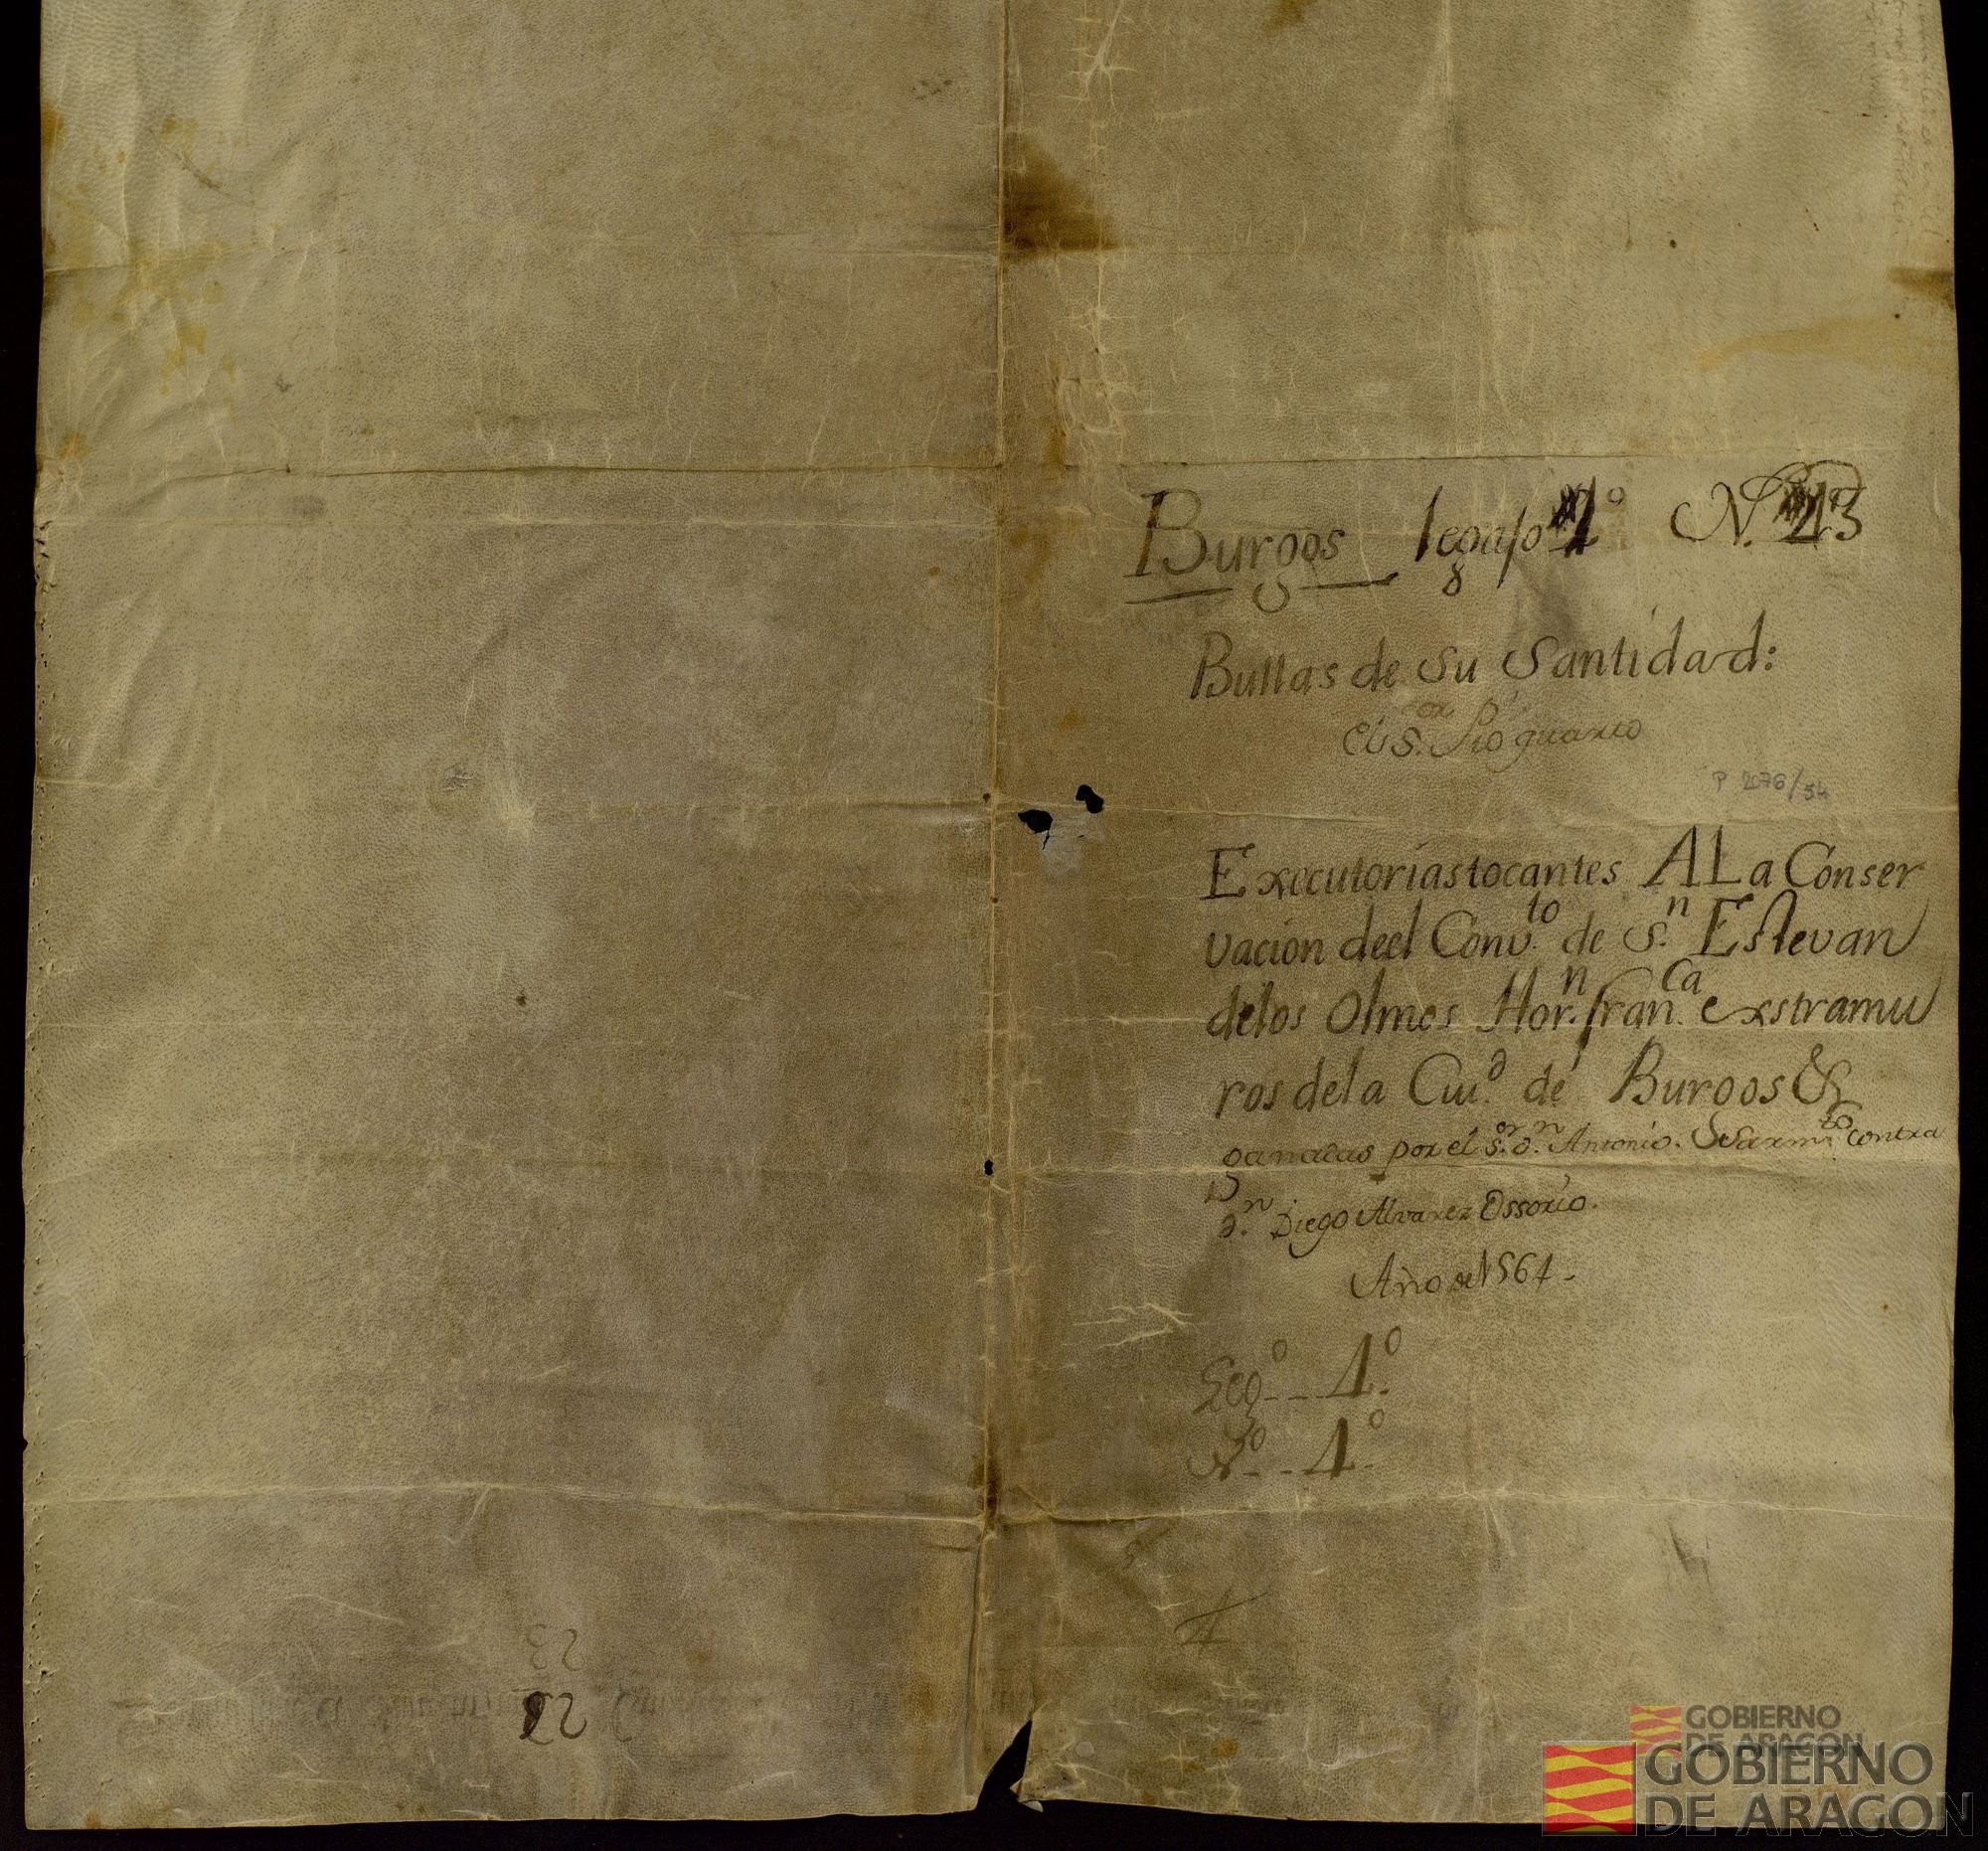 Burgos legajo 1º N. 23
Bullas de Su Santidad:
el S.or Pio quarto
P 2076/54
Executorias tocantes A La Conser
vacion deel Conv.to de S.n Estevan
delos olmos Hor.n fran.ca exstramu
ros dela Ciu.d de Burgos &
ganadas por el S.or d.n Antonio Sarm.to contra
d.n Diego Alvarez Ossorio.
Año de 1564.
Leg.º --- 4.º
N.º --- 4.º
5
4
23
22
GOBIERNO
DE ARAGON
GOBIERNO
DE ARAGON